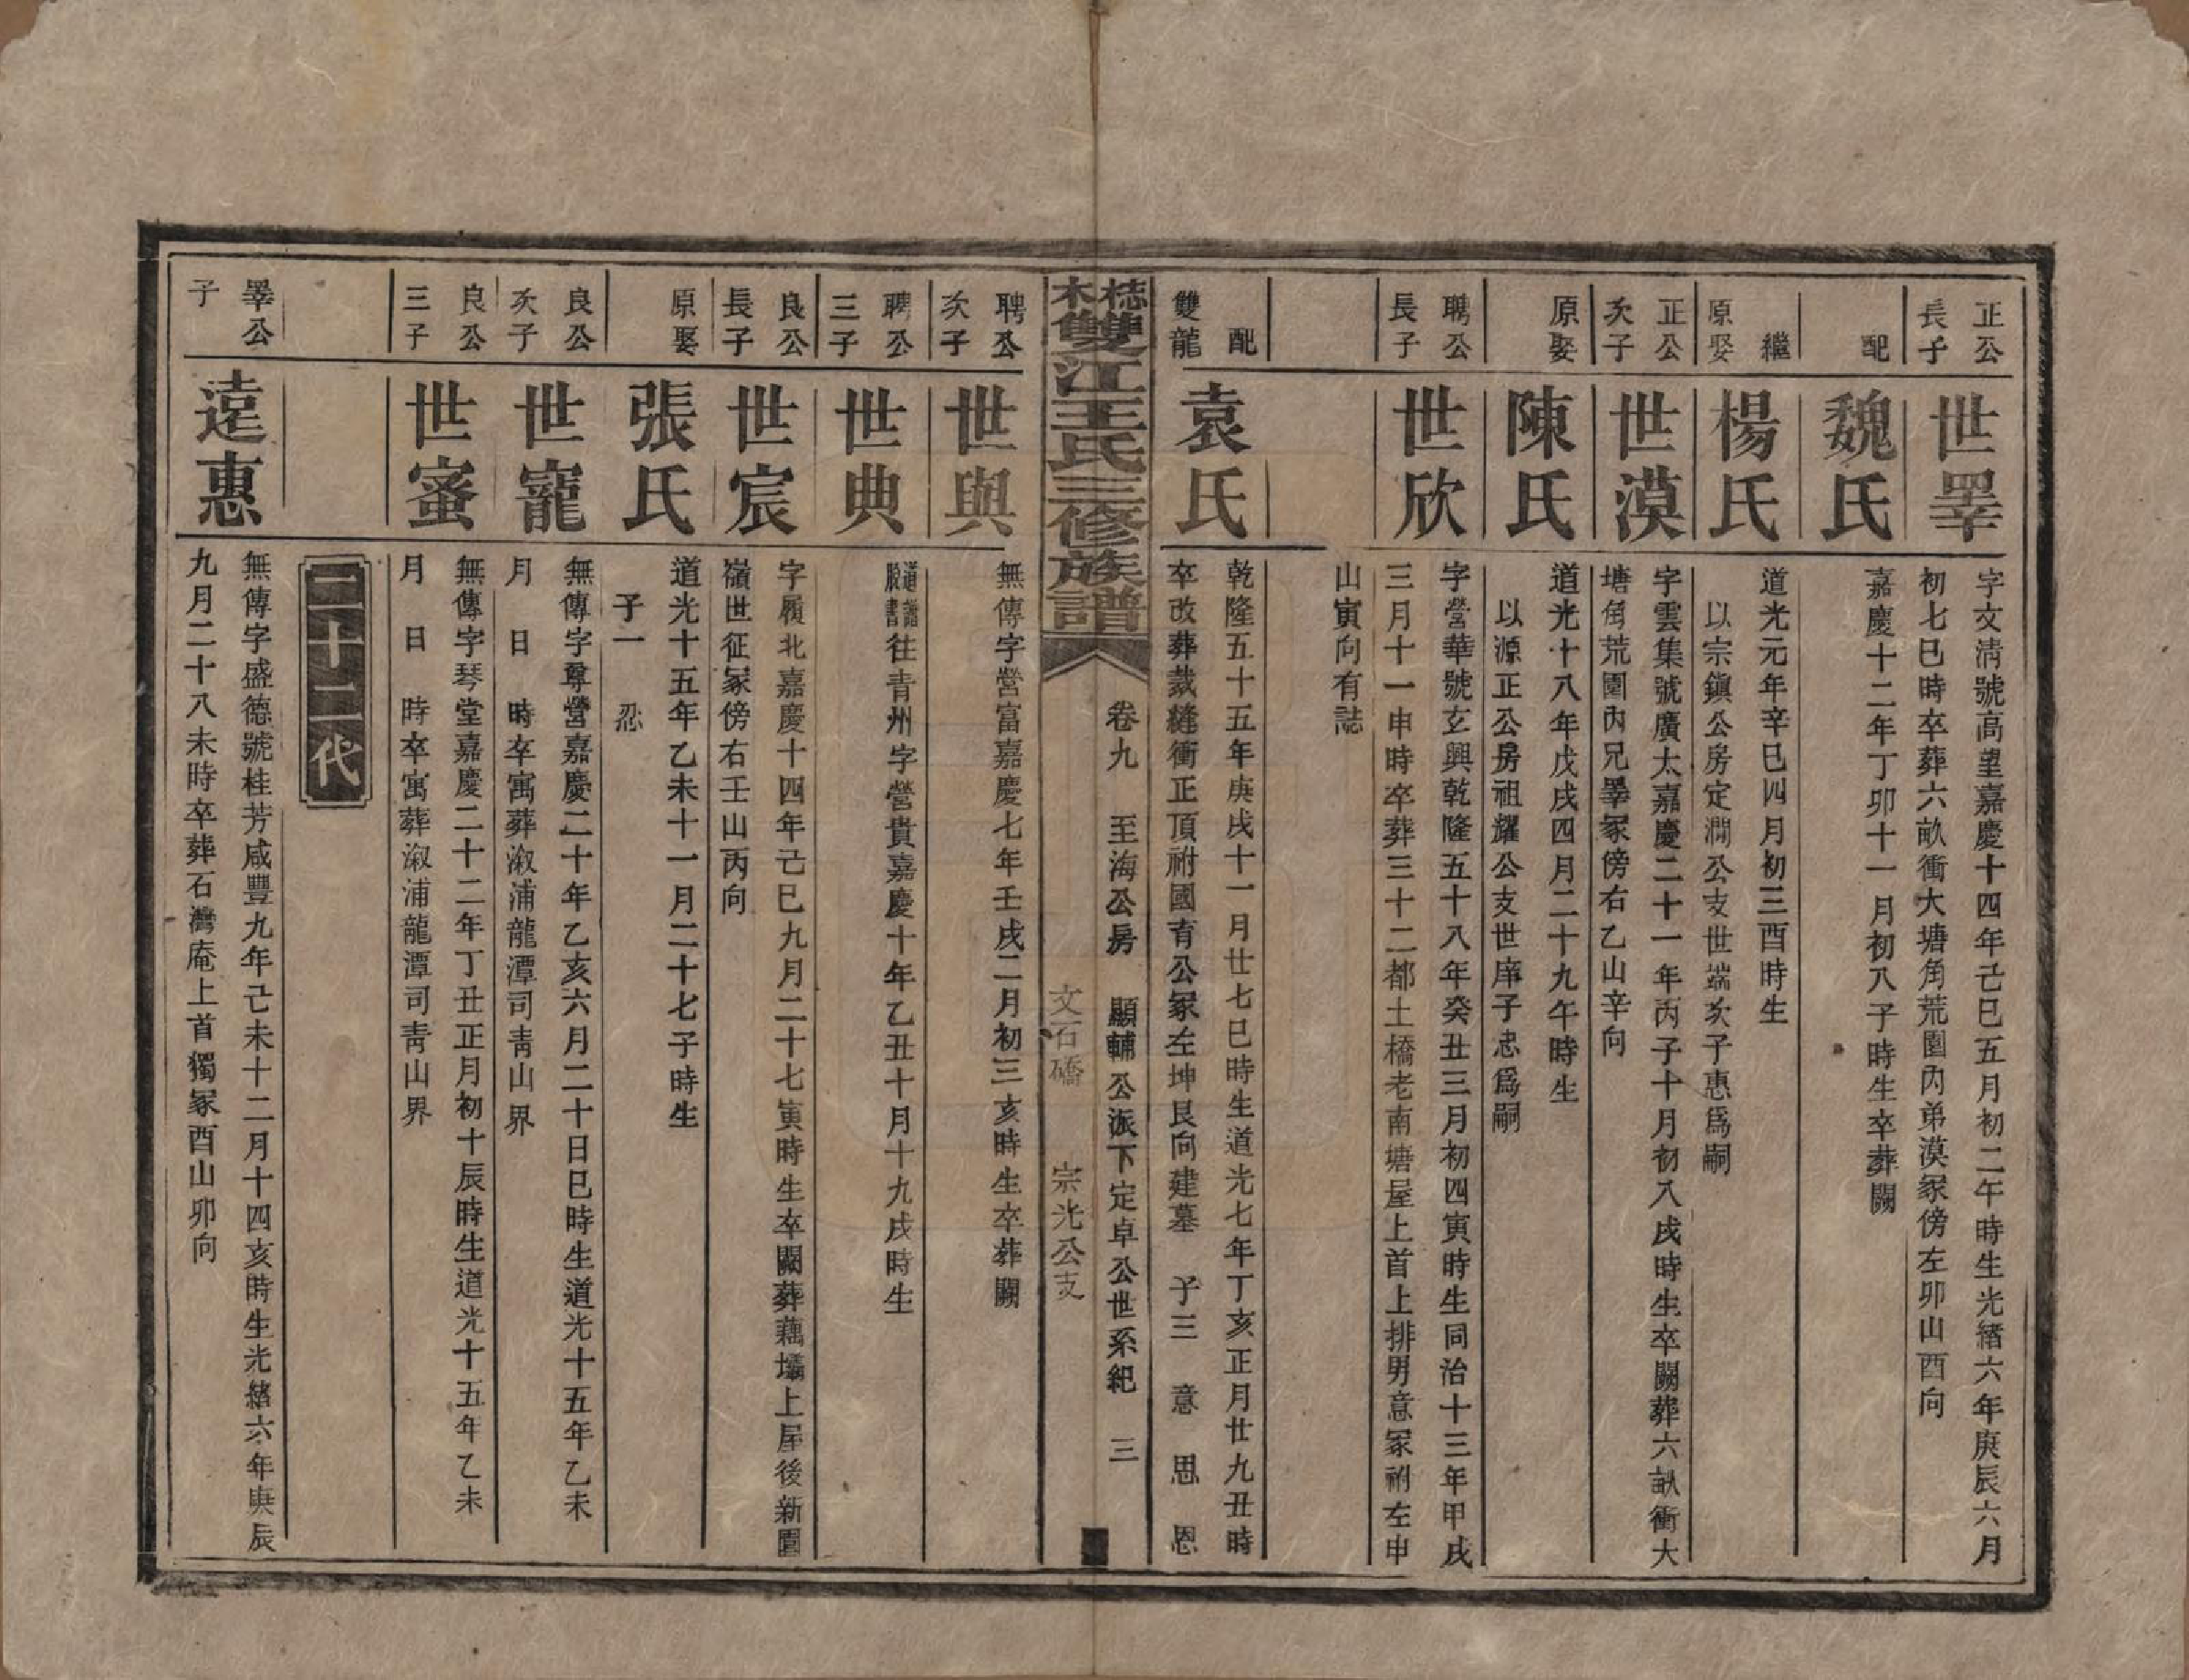 正公
長子
世睪
字文清號高望嘉慶十四年己巳五月初二午時生光緒六年庚辰六月
初七巳時卒葬六畝衝大塘角荒園內弟漠冢傍左卯山酉向
配
魏氏
嘉慶十二年丁卯十一月初八子時生卒葬闕
繼
原娶
楊氏
道光元年辛巳四月初三酉時生
以宗鎮公房定濶公支世端次子惠爲嗣
正公
次子
世漠
字雲集號廣太嘉慶二十一年丙子十月初八戌時生卒闕葬六畝衝大
塘角荒園內兄睪冢傍右乙山辛向
原娶
陳氏
道光十八年戊戌四月二十九午時生
以源正公房祖耀公支世庠子忠爲嗣
聘公
長子
世欣
字營華號玄興乾隆五十八年癸丑三月初四寅時生同治十三年甲戌
三月十一申時卒葬三十二都土橋老南塘屋上首上排男意冢祔左申
山寅向有誌
配
雙龍
袁氏
乾隆五十五年庚戌十一月廿七巳時生道光七年丁亥正月廿九丑時
卒改葬裁縫衝正頂祔國有公冢左坤艮向建墓 子三 意 思 恩
梽木雙江王氏三修族譜
卷九 至海公房 顯輔公派下定卓公世系紀 三
文石磻 宗光公支
聘公
次子
世與
無傳字營富嘉慶七年壬戌二月初三亥時生卒葬闕
聘公
三子
世典
往青州字營貴嘉慶十年乙丑十月十九戌時生
良公
長子
世宸
字履北嘉慶十四年己巳九月二十七寅時生卒闕葬藕壩上屋後新園
嶺世征冢傍右壬山丙向
原娶
張氏
道光十五年乙未十一月二十七子時生
子一 忍
良公
次子
世寵
無傳字尊營嘉慶二十年乙亥六月二十日巳時生道光十五年乙未
月 日 時卒寓葬溆浦龍潭司青山界
良公
三子
世蜜
無傳字琴堂嘉慶二十二年丁丑正月初十辰時生道光十五年乙未
月 日 時卒寓葬溆浦龍潭司青山界
二十二代
睪公
子
遠惠
無傳字盛德號桂芳咸豐九年己未十二月十四亥時生光緒六年庚辰
九月二十八未時卒葬石灣庵上首獨冢酉山卯向